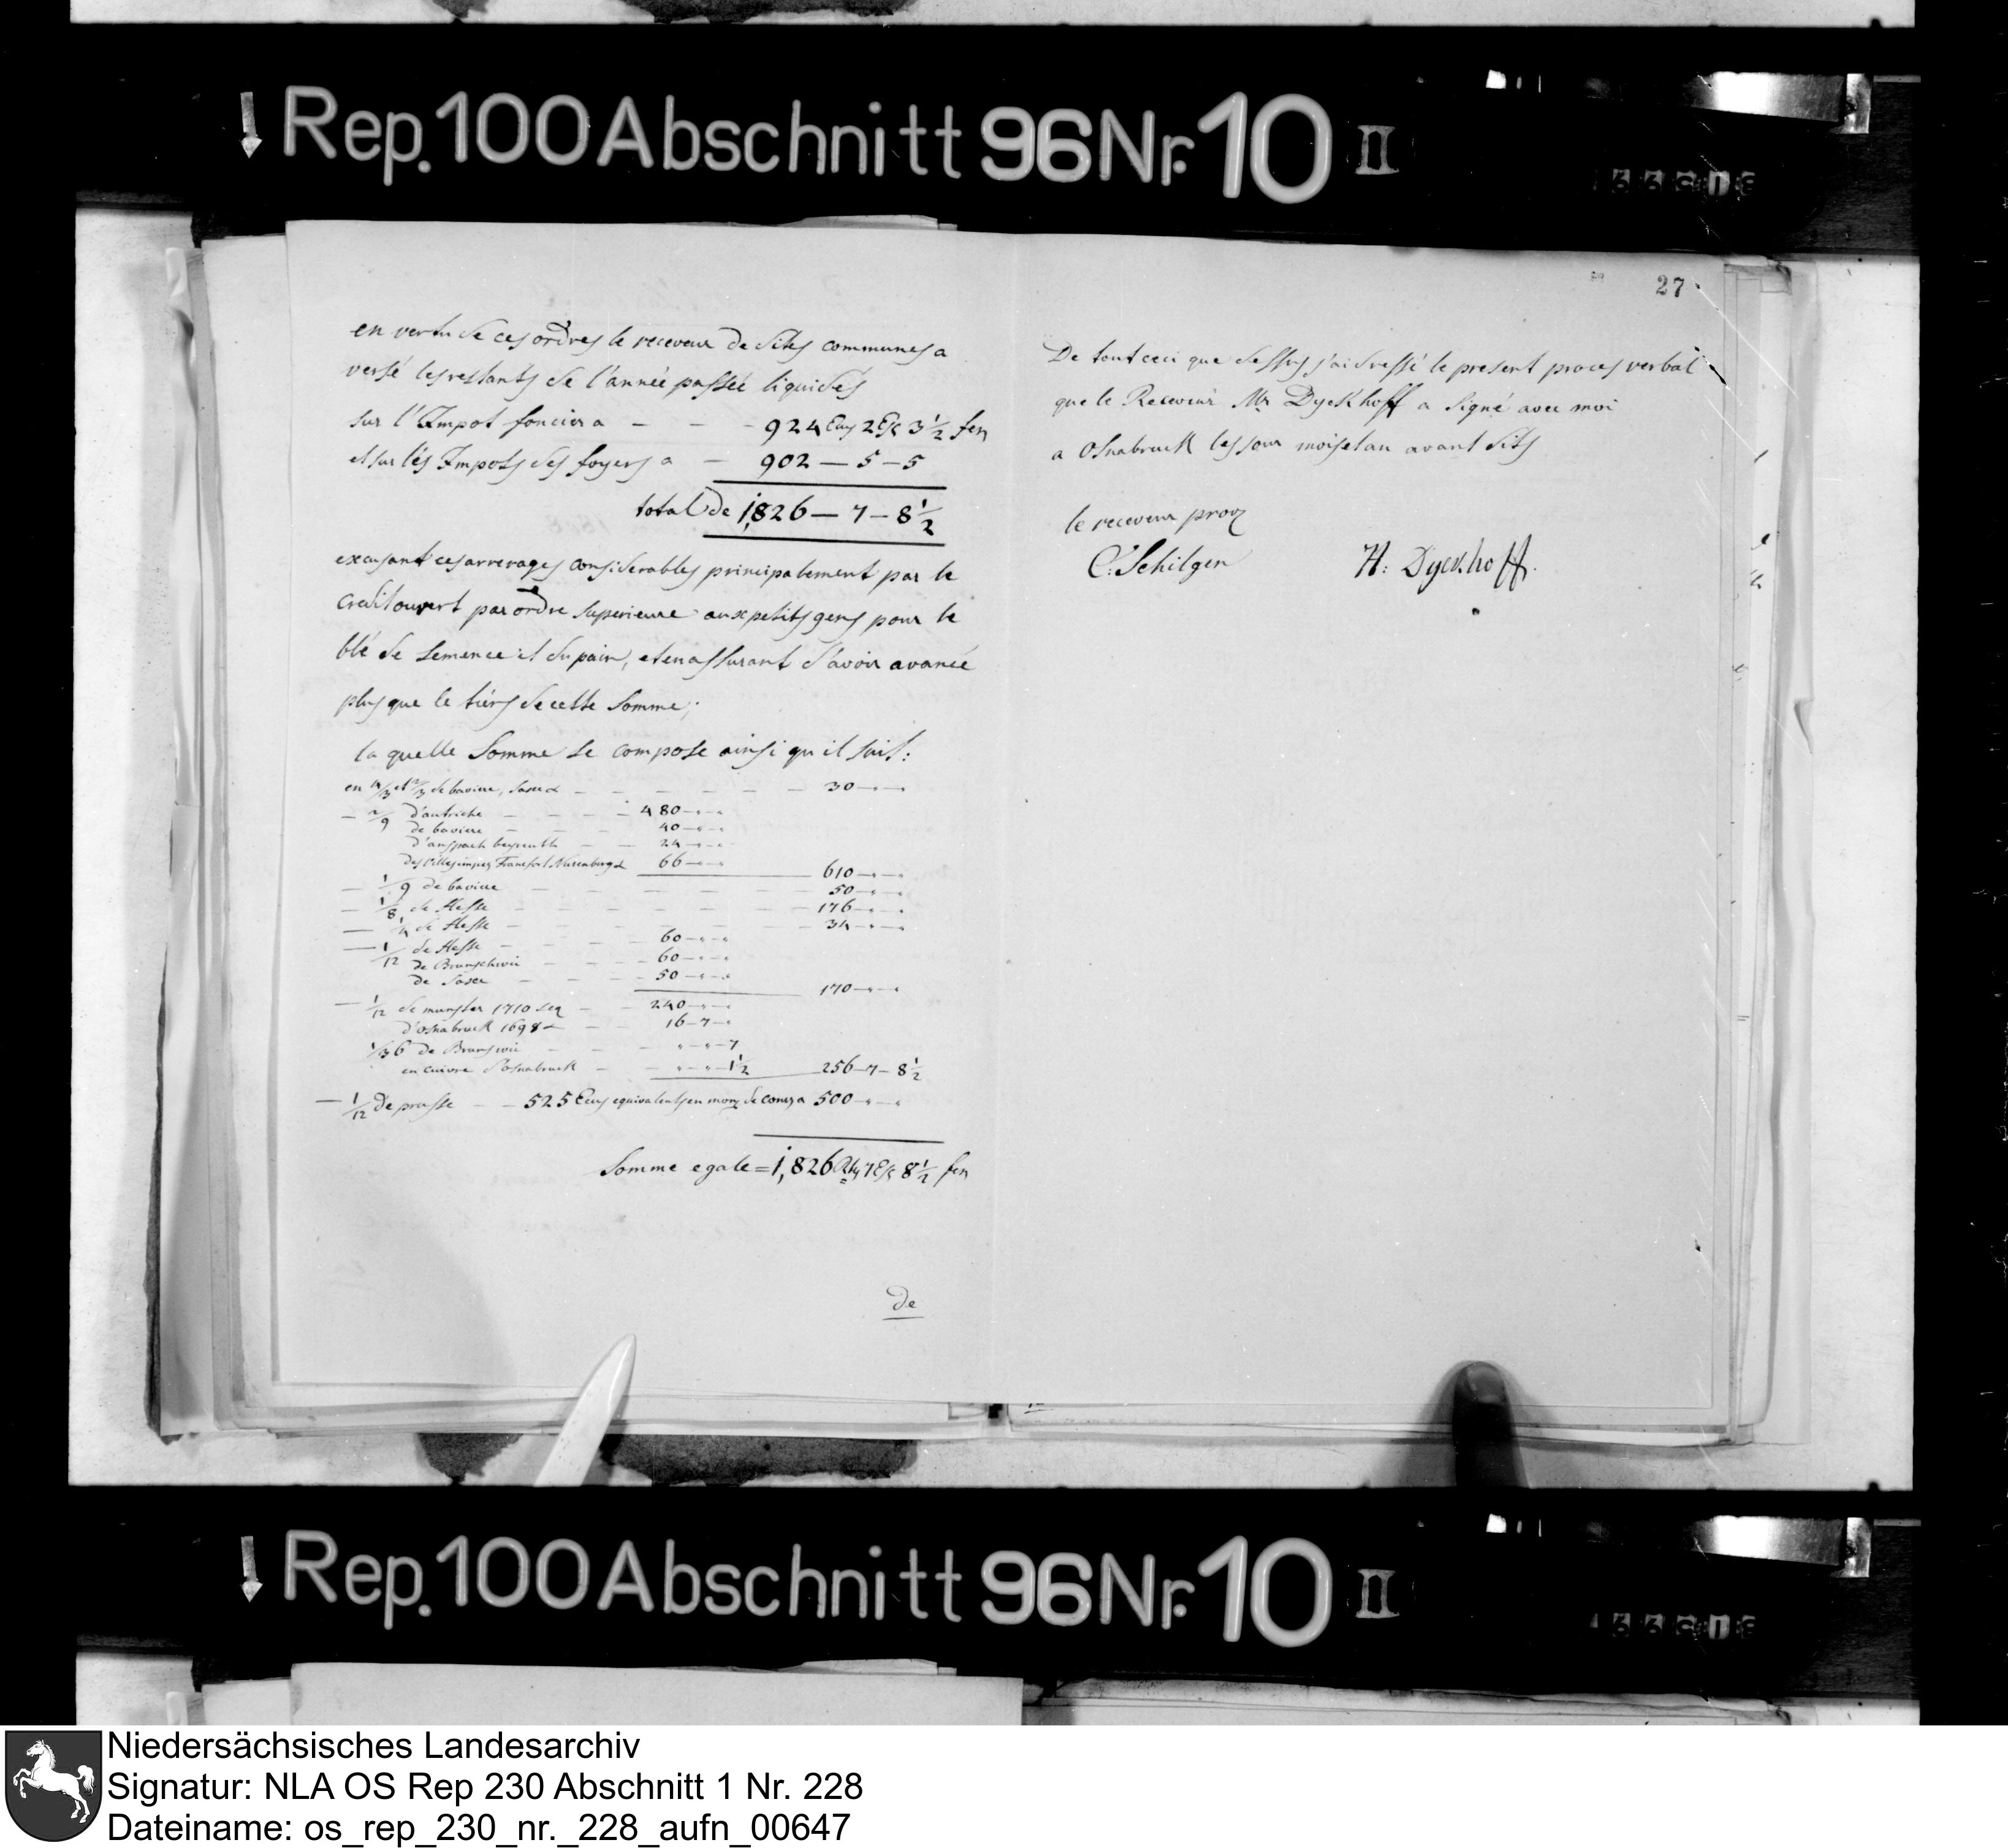 Rep. 100 Abschnitt 96 Nr. 10 II
27
en vertu de ces ordres le receveur de dites communes a
versé les restants de l'année passée liquidés
sur l'Impot foncier a - - - 924 Ecus 2 Esc 3 1/2 fen
et sur les Impots des foyers a - 902 - 5 - 5
total de 1,826 - 7 - 8 1/2
excusant ces arrerages considerables principalement par le
credit ouvert par ordre superieure aux petits gens pour le
blé de semence et du pain, et en assurant d'avoir avancé
plus que le tiers de cette Somme;
la quelle Somme se compose ainsi qu'il suit:
en de baviere, Saxe - - - - - - 30 - " - "
- 2/9 d'autriche - - - - 480 - " - "
de baviere - - - 40 - " - "
d'anspach beyreuth - - 24 - " - "
des villes imper Francfort Nurenberg & 66 - " - " 610 - " - "
- 1/9 de baviere - - - - - - 50 - " - "
- 1/8 de Hesse - - - - - - 176 - " - "
- 1/4 de Hesse - - - - - - 34 - " - "
- 1/12 de Hesse - - - - 60 - " - "
de Brunschwic - - - - 60 - " - "
de Saxe - - - - 50 - " - " 170 - " - "
- 1/12 de munster 1710 seq - - 240 - " - "
d'osnabruck - - 16 - 7 - "
1/36 de Brunswic - - - " - " - 7
en cuivre d'osnabruck - - " - " - 1 1/2 256 - 7 - 8 1/2
- 1/12 de prusse - - 525 Ecus equivalents en mon de cours a 500 - " - "
Somme egale = 1,826 7 Esc 8 1/2 fen
de
De tout ceci que dessus j'ai dressé le present proces verbal
que le Receveur Mr Dyckhoff a Signé avec moi
a Osnabruck les jour mois et an avant dits
le receveur prov
C. Schilgen H: Dyckhoff.
Rep. 100 Abschnitt 96 Nr. 10 II
Niedersächsisches Landesarchiv
Signatur: NLA OS Rep 230 Abschnitt 1 Nr. 228
Dateiname: os_rep_230_nr._228_aufn_00647